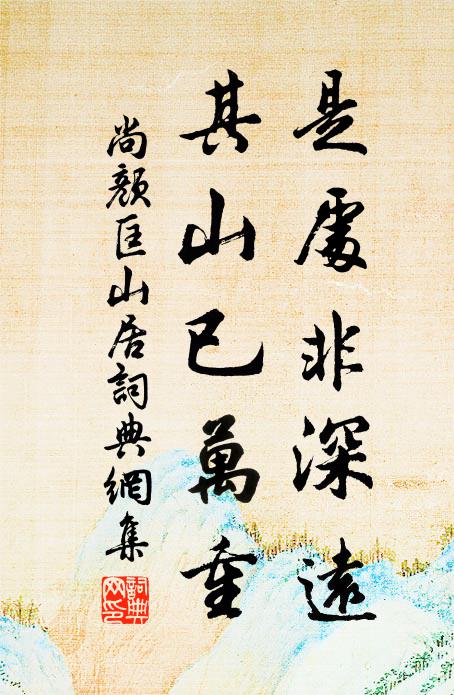 是處非深遠
其山已萬重
尚顏匡山居詞典網集
詞典網印